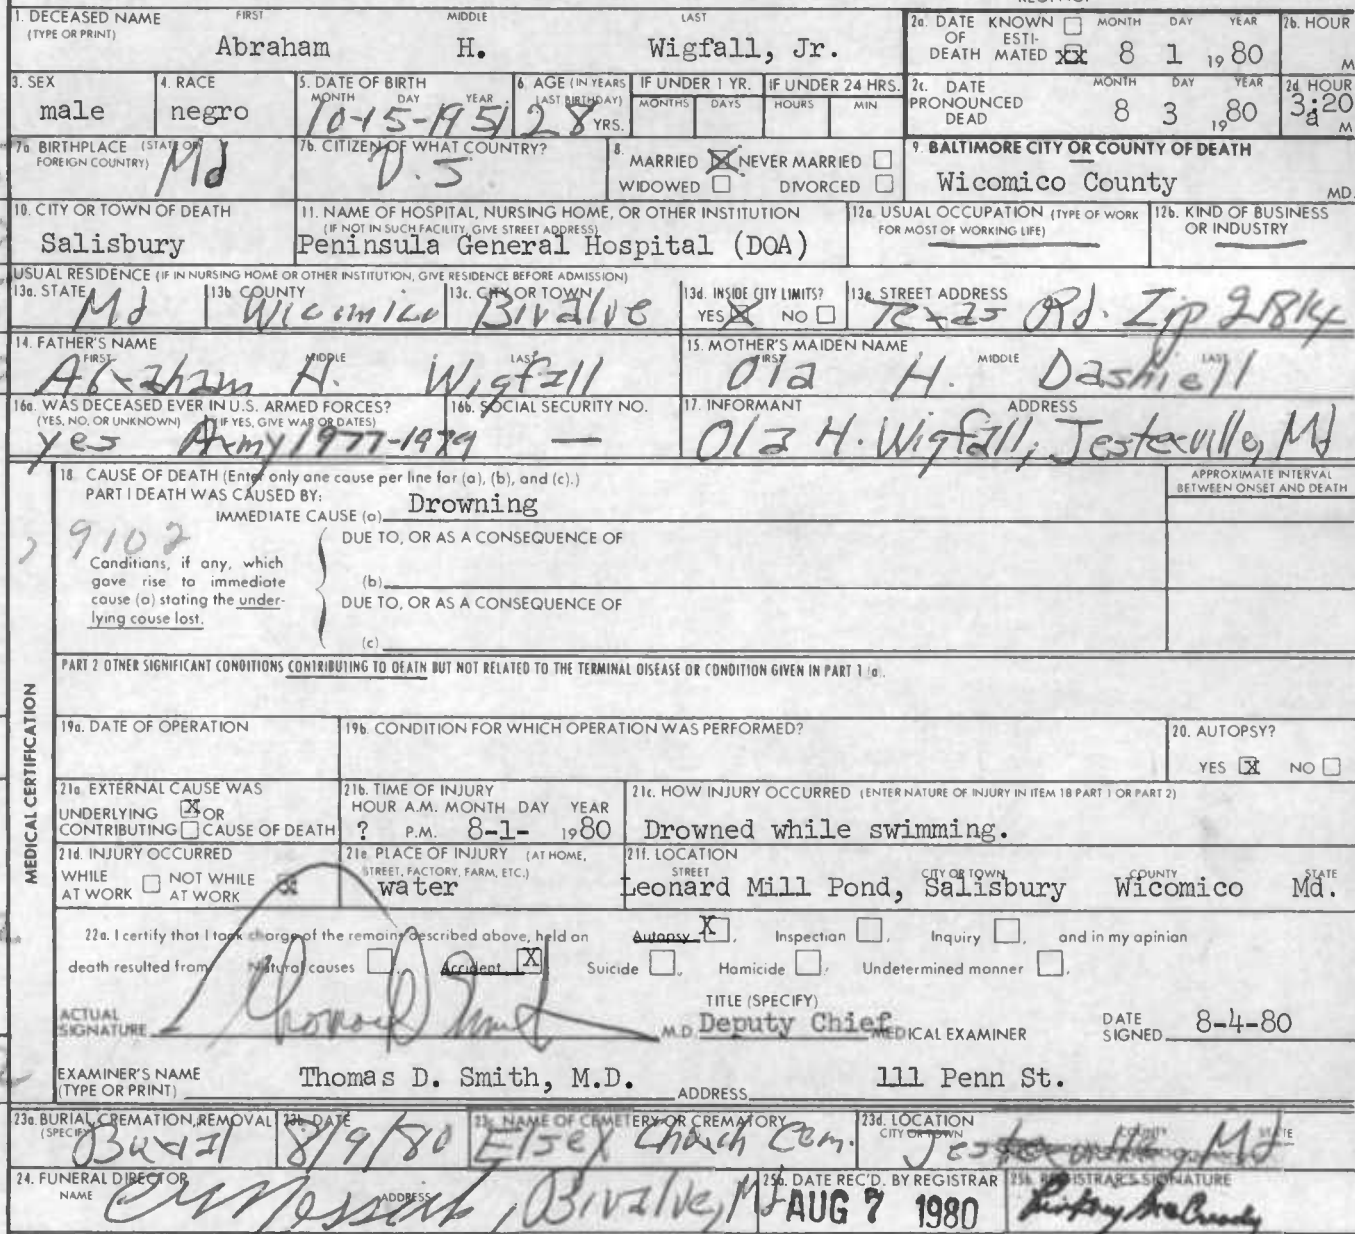 1. DECEASED NAME (TYPE OR PRINT) FIRST MIDDLE LAST
Abraham H. Wigfall, Jr.
2a. DATE OF DEATH KNOWN ☐ ESTIMATED xx MONTH DAY YEAR 8 1 1980
2b. HOUR M
3. SEX male
4. RACE negro
5. DATE OF BIRTH MONTH DAY YEAR 10-15-1951
6. AGE (IN YEARS LAST BIRTHDAY) 28 YRS.
IF UNDER 1 YR. MONTHS DAYS
IF UNDER 24 HRS. HOURS MIN
2c. DATE PRONOUNCED DEAD MONTH DAY YEAR 8 3 1980
2d HOUR 3:20 a M
7a BIRTHPLACE (STATE OR FOREIGN COUNTRY) Md
7b. CITIZEN OF WHAT COUNTRY? U.S
8. MARRIED ☒ NEVER MARRIED ☐
WIDOWED ☐ DIVORCED ☐
9. BALTIMORE CITY OR COUNTY OF DEATH
Wicomico County MD.
10. CITY OR TOWN OF DEATH
Salisbury
11. NAME OF HOSPITAL, NURSING HOME, OR OTHER INSTITUTION
(IF NOT IN SUCH FACILITY, GIVE STREET ADDRESS)
Peninsula General Hospital (DOA)
12a. USUAL OCCUPATION (TYPE OF WORK FOR MOST OF WORKING LIFE)
12b. KIND OF BUSINESS OR INDUSTRY
USUAL RESIDENCE (IF IN NURSING HOME OR OTHER INSTITUTION, GIVE RESIDENCE BEFORE ADMISSION)
13a. STATE Md
13b COUNTY Wicomico
13c. CITY OR TOWN Bivalve
13d. INSIDE CITY LIMITS? YES ☒ NO ☐
13e. STREET ADDRESS Texas Rd. Zip 21814
14. FATHER'S NAME FIRST MIDDLE LAST
Abraham H. Wigfall
15. MOTHER'S MAIDEN NAME FIRST MIDDLE LAST
Ola H. Dashiell
16a. WAS DECEASED EVER IN U.S. ARMED FORCES?
(YES, NO, OR UNKNOWN) (IF YES, GIVE WAR OR DATES)
yes Army 1977-1979
16b. SOCIAL SECURITY NO. —
17. INFORMANT ADDRESS
Ola H. Wigfall, Jesterville, Md
MEDICAL CERTIFICATION
18. CAUSE OF DEATH (Enter only one cause per line for (a), (b), and (c).)
APPROXIMATE INTERVAL BETWEEN ONSET AND DEATH
PART I DEATH WAS CAUSED BY:
IMMEDIATE CAUSE (a) Drowning
9102
DUE TO, OR AS A CONSEQUENCE OF
Conditions, if any, which gave rise to immediate cause (a) stating the underlying cause last.
(b)
DUE TO, OR AS A CONSEQUENCE OF
(c)
PART 2 OTHER SIGNIFICANT CONDITIONS CONTRIBUTING TO DEATH BUT NOT RELATED TO THE TERMINAL DISEASE OR CONDITION GIVEN IN PART 1 (a).
19a. DATE OF OPERATION
19b. CONDITION FOR WHICH OPERATION WAS PERFORMED?
20. AUTOPSY? YES ☒ NO ☐
21a EXTERNAL CAUSE WAS
UNDERLYING ☒ OR
CONTRIBUTING ☐ CAUSE OF DEATH
21b. TIME OF INJURY
HOUR A.M. MONTH DAY YEAR
? P.M. 8-1- 1980
21c. HOW INJURY OCCURRED (ENTER NATURE OF INJURY IN ITEM 18 PART 1 OR PART 2)
Drowned while swimming.
21d. INJURY OCCURRED
WHILE AT WORK ☐ NOT WHILE AT WORK ☒
21e. PLACE OF INJURY (AT HOME, STREET, FACTORY, FARM, ETC.)
water
21f. LOCATION STREET CITY OR TOWN COUNTY STATE
Leonard Mill Pond, Salisbury Wicomico Md.
22a. I certify that I took charge of the remains described above, held an Autopsy ☒, Inspection ☐, Inquiry ☐, and in my opinion
death resulted from Natural causes ☐, Accident ☒ Suicide ☐, Homicide ☐, Undetermined manner ☐.
ACTUAL SIGNATURE Thomas D. Smith M.D.
TITLE (SPECIFY) Deputy Chief MEDICAL EXAMINER
DATE SIGNED 8-4-80
EXAMINER'S NAME (TYPE OR PRINT) Thomas D. Smith, M.D. ADDRESS 111 Penn St.
23a. BURIAL, CREMATION, REMOVAL (SPECIFY) Burial
23b. DATE 8/9/80
23c. NAME OF CEMETERY OR CREMATORY Church Cem.
23d. LOCATION CITY OR TOWN COUNTY STATE
Jesterville, Md
24. FUNERAL DIRECTOR NAME ADDRESS
Messick, Bivalve, Md
25a. DATE REC'D. BY REGISTRAR
AUG 7 1980
25b. REGISTRAR'S SIGNATURE